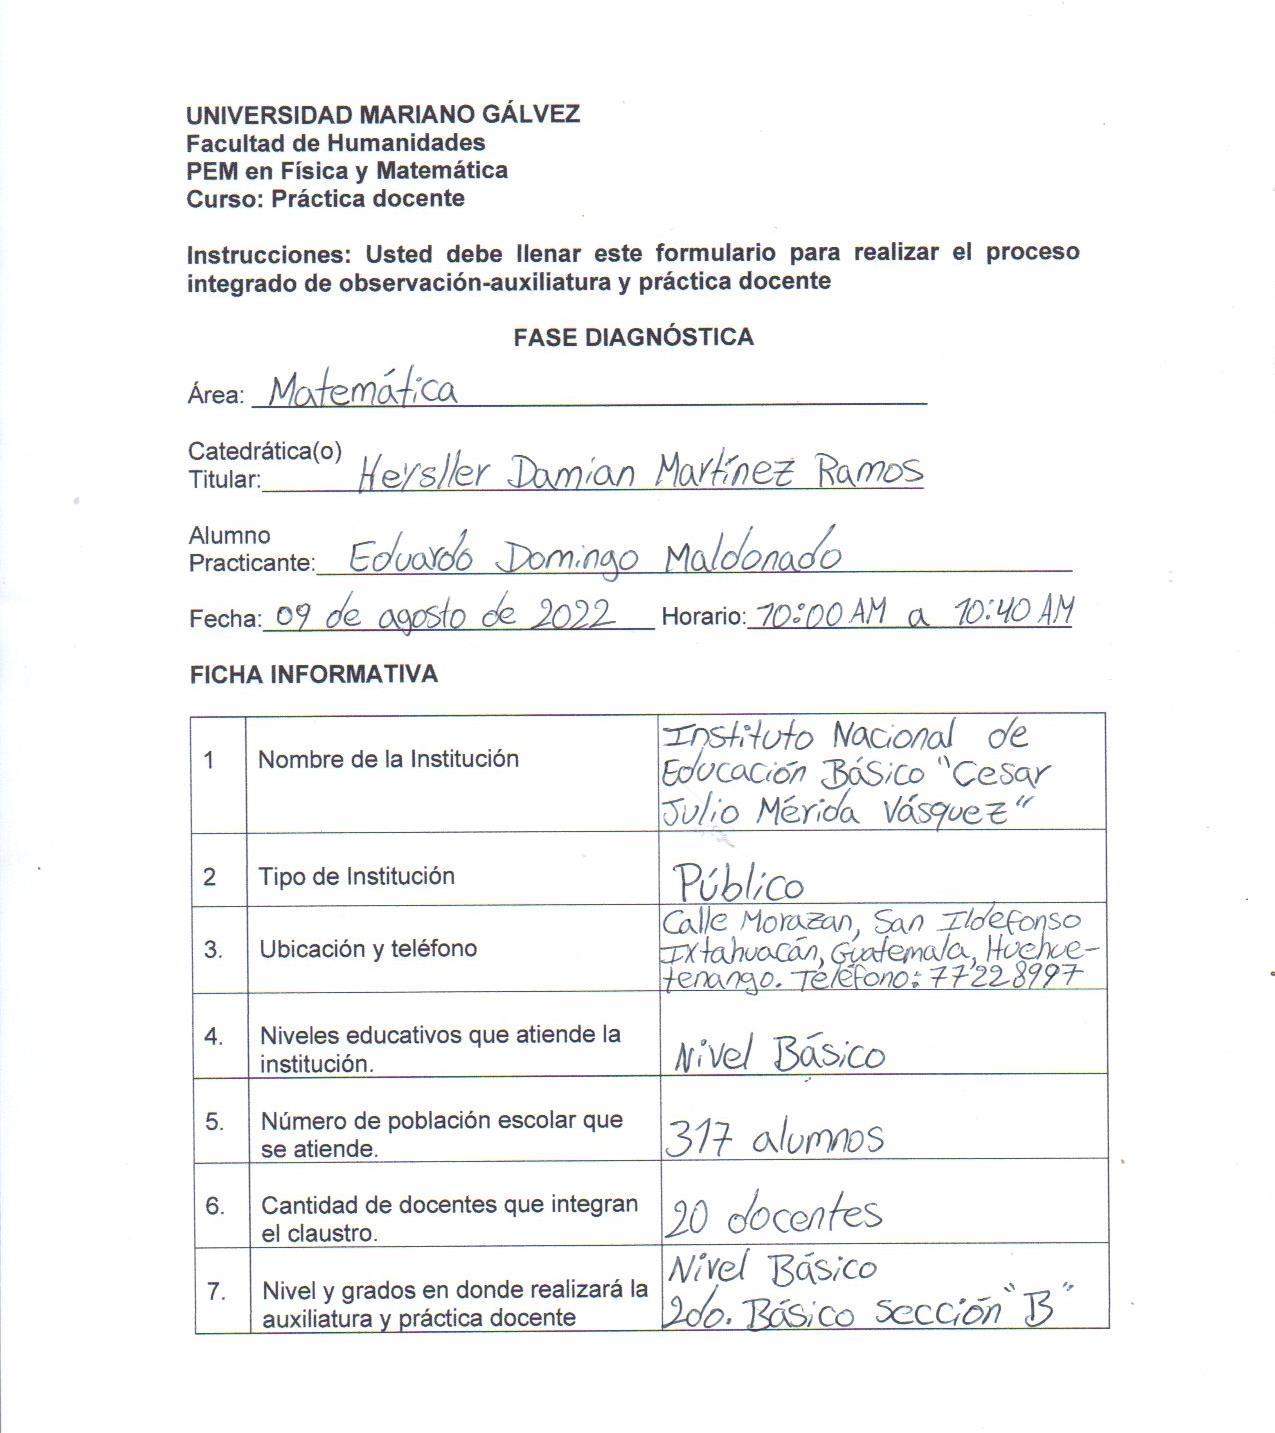 UNIVERSIDAD MARIANO GÁLVEZ
Facultad de Humanidades
PEM en Física y Matemática
Curso: Práctica docente
Instrucciones: Usted debe llenar este formulario para realizar el proceso
integrado de observación-auxiliatura y práctica docente
FASE DIAGNÓSTICA
Área: Matemática
Catedrática(o)
Titular: Heysller Damian Martínez Ramos
Alumno
Practicante: Eduardo Domingo Maldonado
Fecha: 09 de agosto de 2022 Horario: 10:00 AM a 10:40 AM
FICHA INFORMATIVA
1 Nombre de la Institución
Instituto Nacional de
Educación Básico "Cesar
Julio Mérida Vásquez"
2 Tipo de Institución Público
3. Ubicación y teléfono
Calle Morazan, San Ildefonso
Ixtahuacán, Guatemala, Huehue-
tenango. Teléfono: 77228997
4. Niveles educativos que atiende la
institución.
Nivel Básico
5. Número de población escolar que
se atiende.
317 alumnos
6. Cantidad de docentes que integran
el claustro.
20 docentes
7. Nivel y grados en donde realizará la
auxiliatura y práctica docente
Nivel Básico
2do. Básico Sección "B"